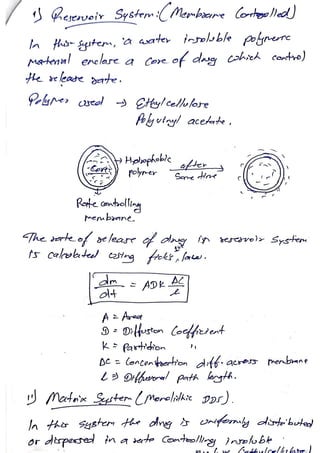 1) Reservoir System :- (Membrane Controlled)
In this system, a water insoluble polymeric
material enclose a core of drug which control
the release rate.
Polymer used → Ethylcellulose
Polyvinyl acetate.
Core
Hydrophobic
polymer
after
Some time
Rate controlling
membrane.
The rate of release of drug in reservoir system
is calculated using fick's 1st law.
dm/dt = ADK ΔC/L
A = Area
D = Diffusion Coefficient
K = Partition "
ΔC = Concentration diff. across membrane
L ⇒ Diffusional path length.
11) Matrix System (Monolithic DDS).
In this system the drug is uniformly distributed
or dispersed in a rate controlling insoluble